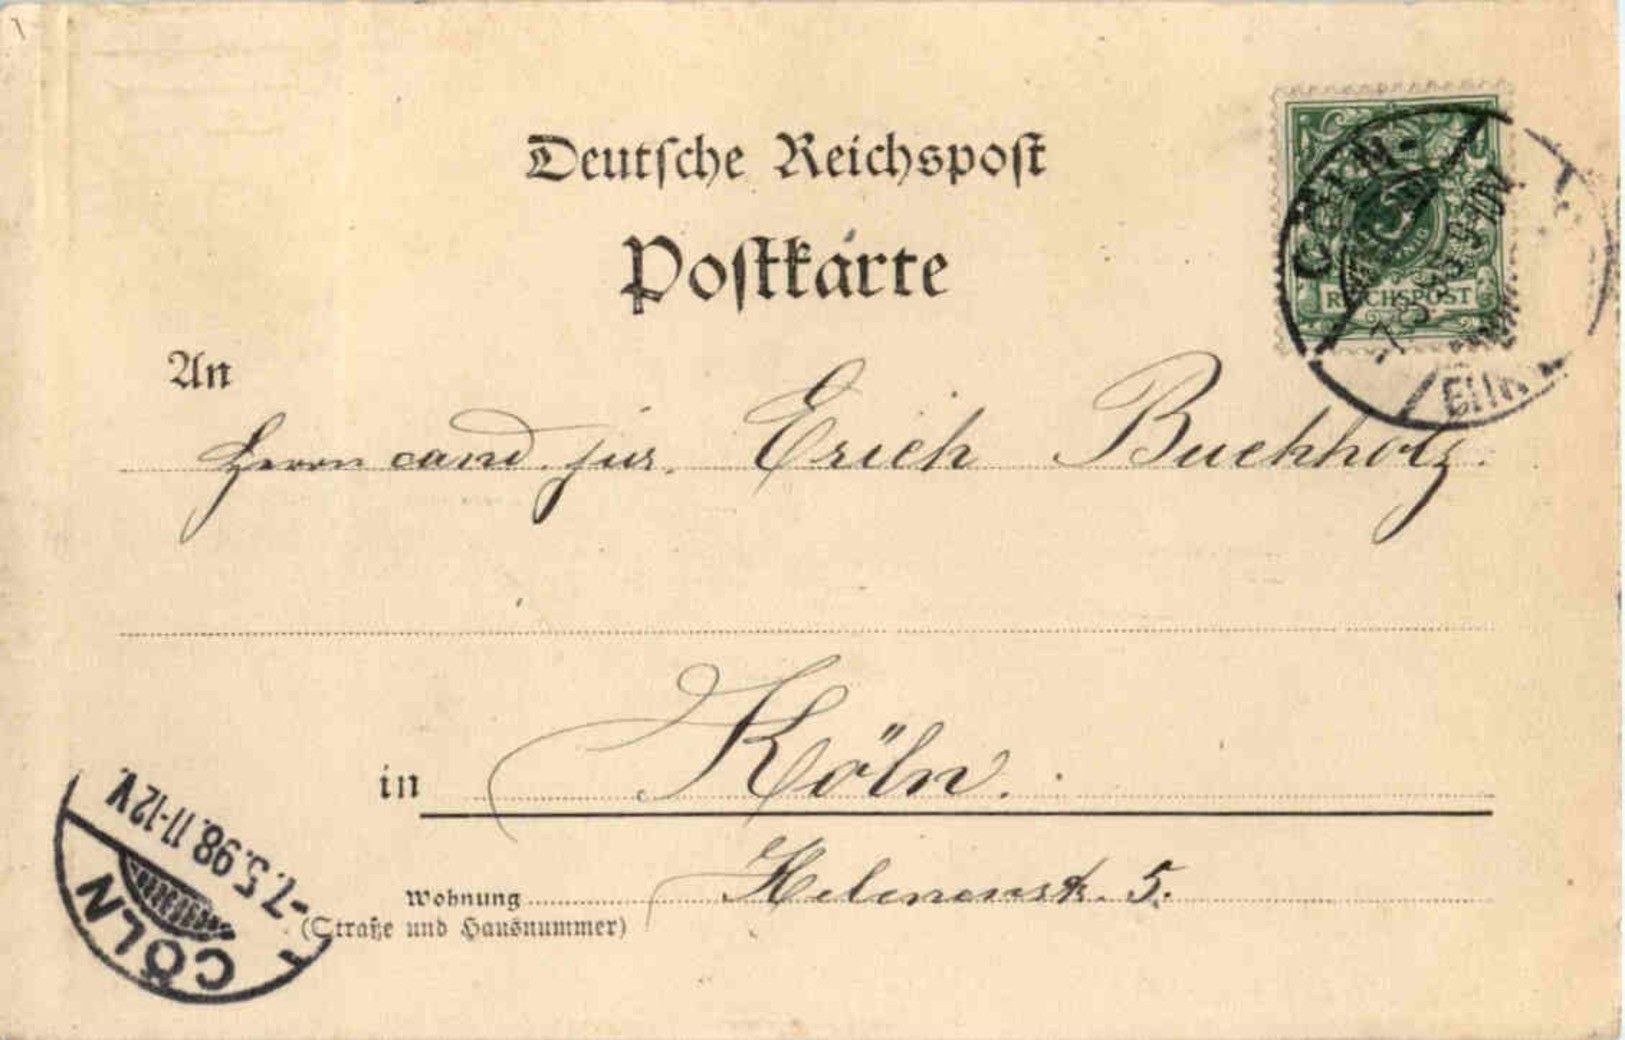 Deutsche Reichspost
Postkarte
CÖLN-
REICHSPOST
An
Herrn cand. jur. Erich Buchholz.
in Köln.
Wohnung Helenenstr. 5.
(Straße und Hausnummer)
CÖLN
-7.5.98.11-12V.